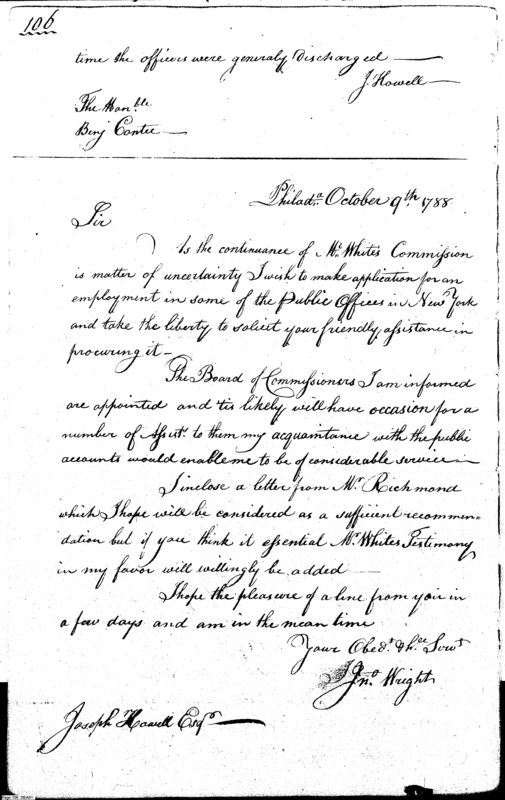 106
time the officers were generaly Discharged —
J. Howell —
The Hon.ble
Benj Contee —
Philad.a October 9.th 1788
Sir
As the continuance of Mr. Whites Commission
is matter of uncertainty I wish to make application for an
employment in some of the Public Offices in New York
and take the liberty to solicit your friendly assistance in
procuring it —
The Board of Commissioners I am informed
are appointed and tis likely will have occasion for a
number of Assist.s to them my acquaintance with the public
accounts would enable me to be of considerable service —
I inclose a letter from Mr. Richmond
which I hope will be considered as a sufficient recommen-
dation but if you think it essential Mr. Whites Testimony
in my favor will willingly be added —
I hope the pleasure of a line from you in
a few days and am in the mean time
Your Obed.t & h.ble Serv.t
Jn.o Wright
Joseph Howell Esq.r —